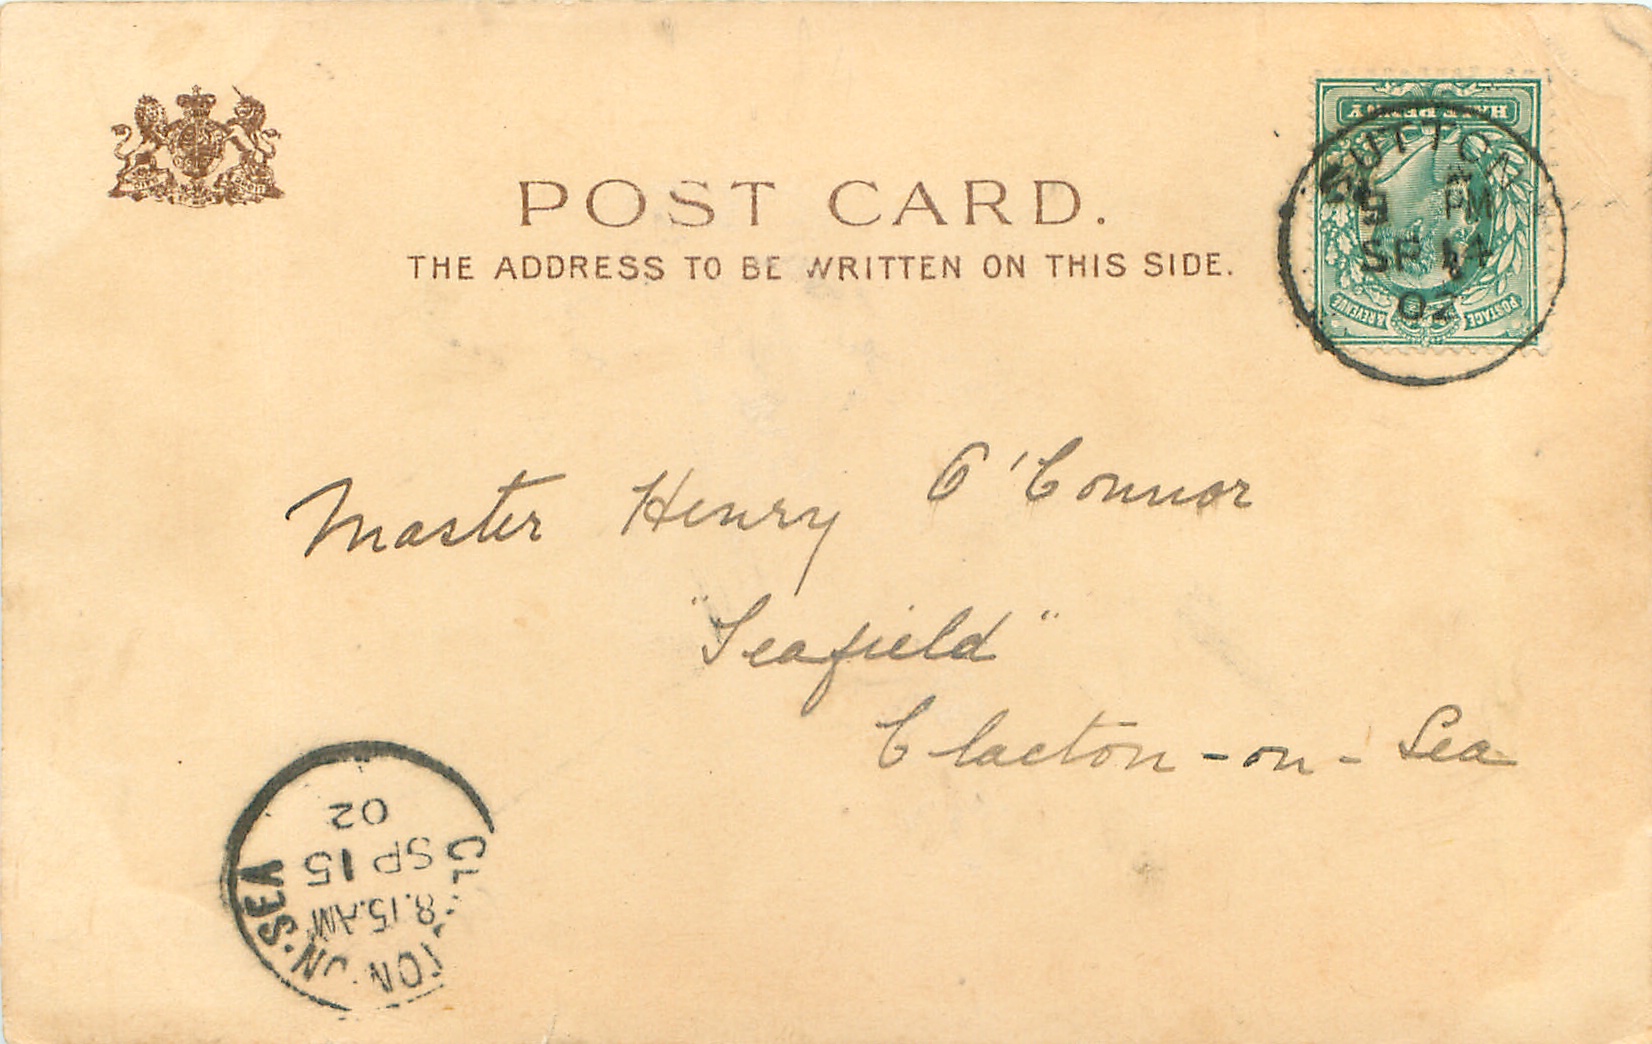 POST CARD.
THE ADDRESS TO BE WRITTEN ON THIS SIDE.
HALF PENNY
POSTAGE & REVENUE
SUTTON
PM
SP 14
02
Master Henry O'Connor
"Seafield"
Clacton-on-Sea
CLACTON-ON-SEA
8.15.AM
SP 15
02